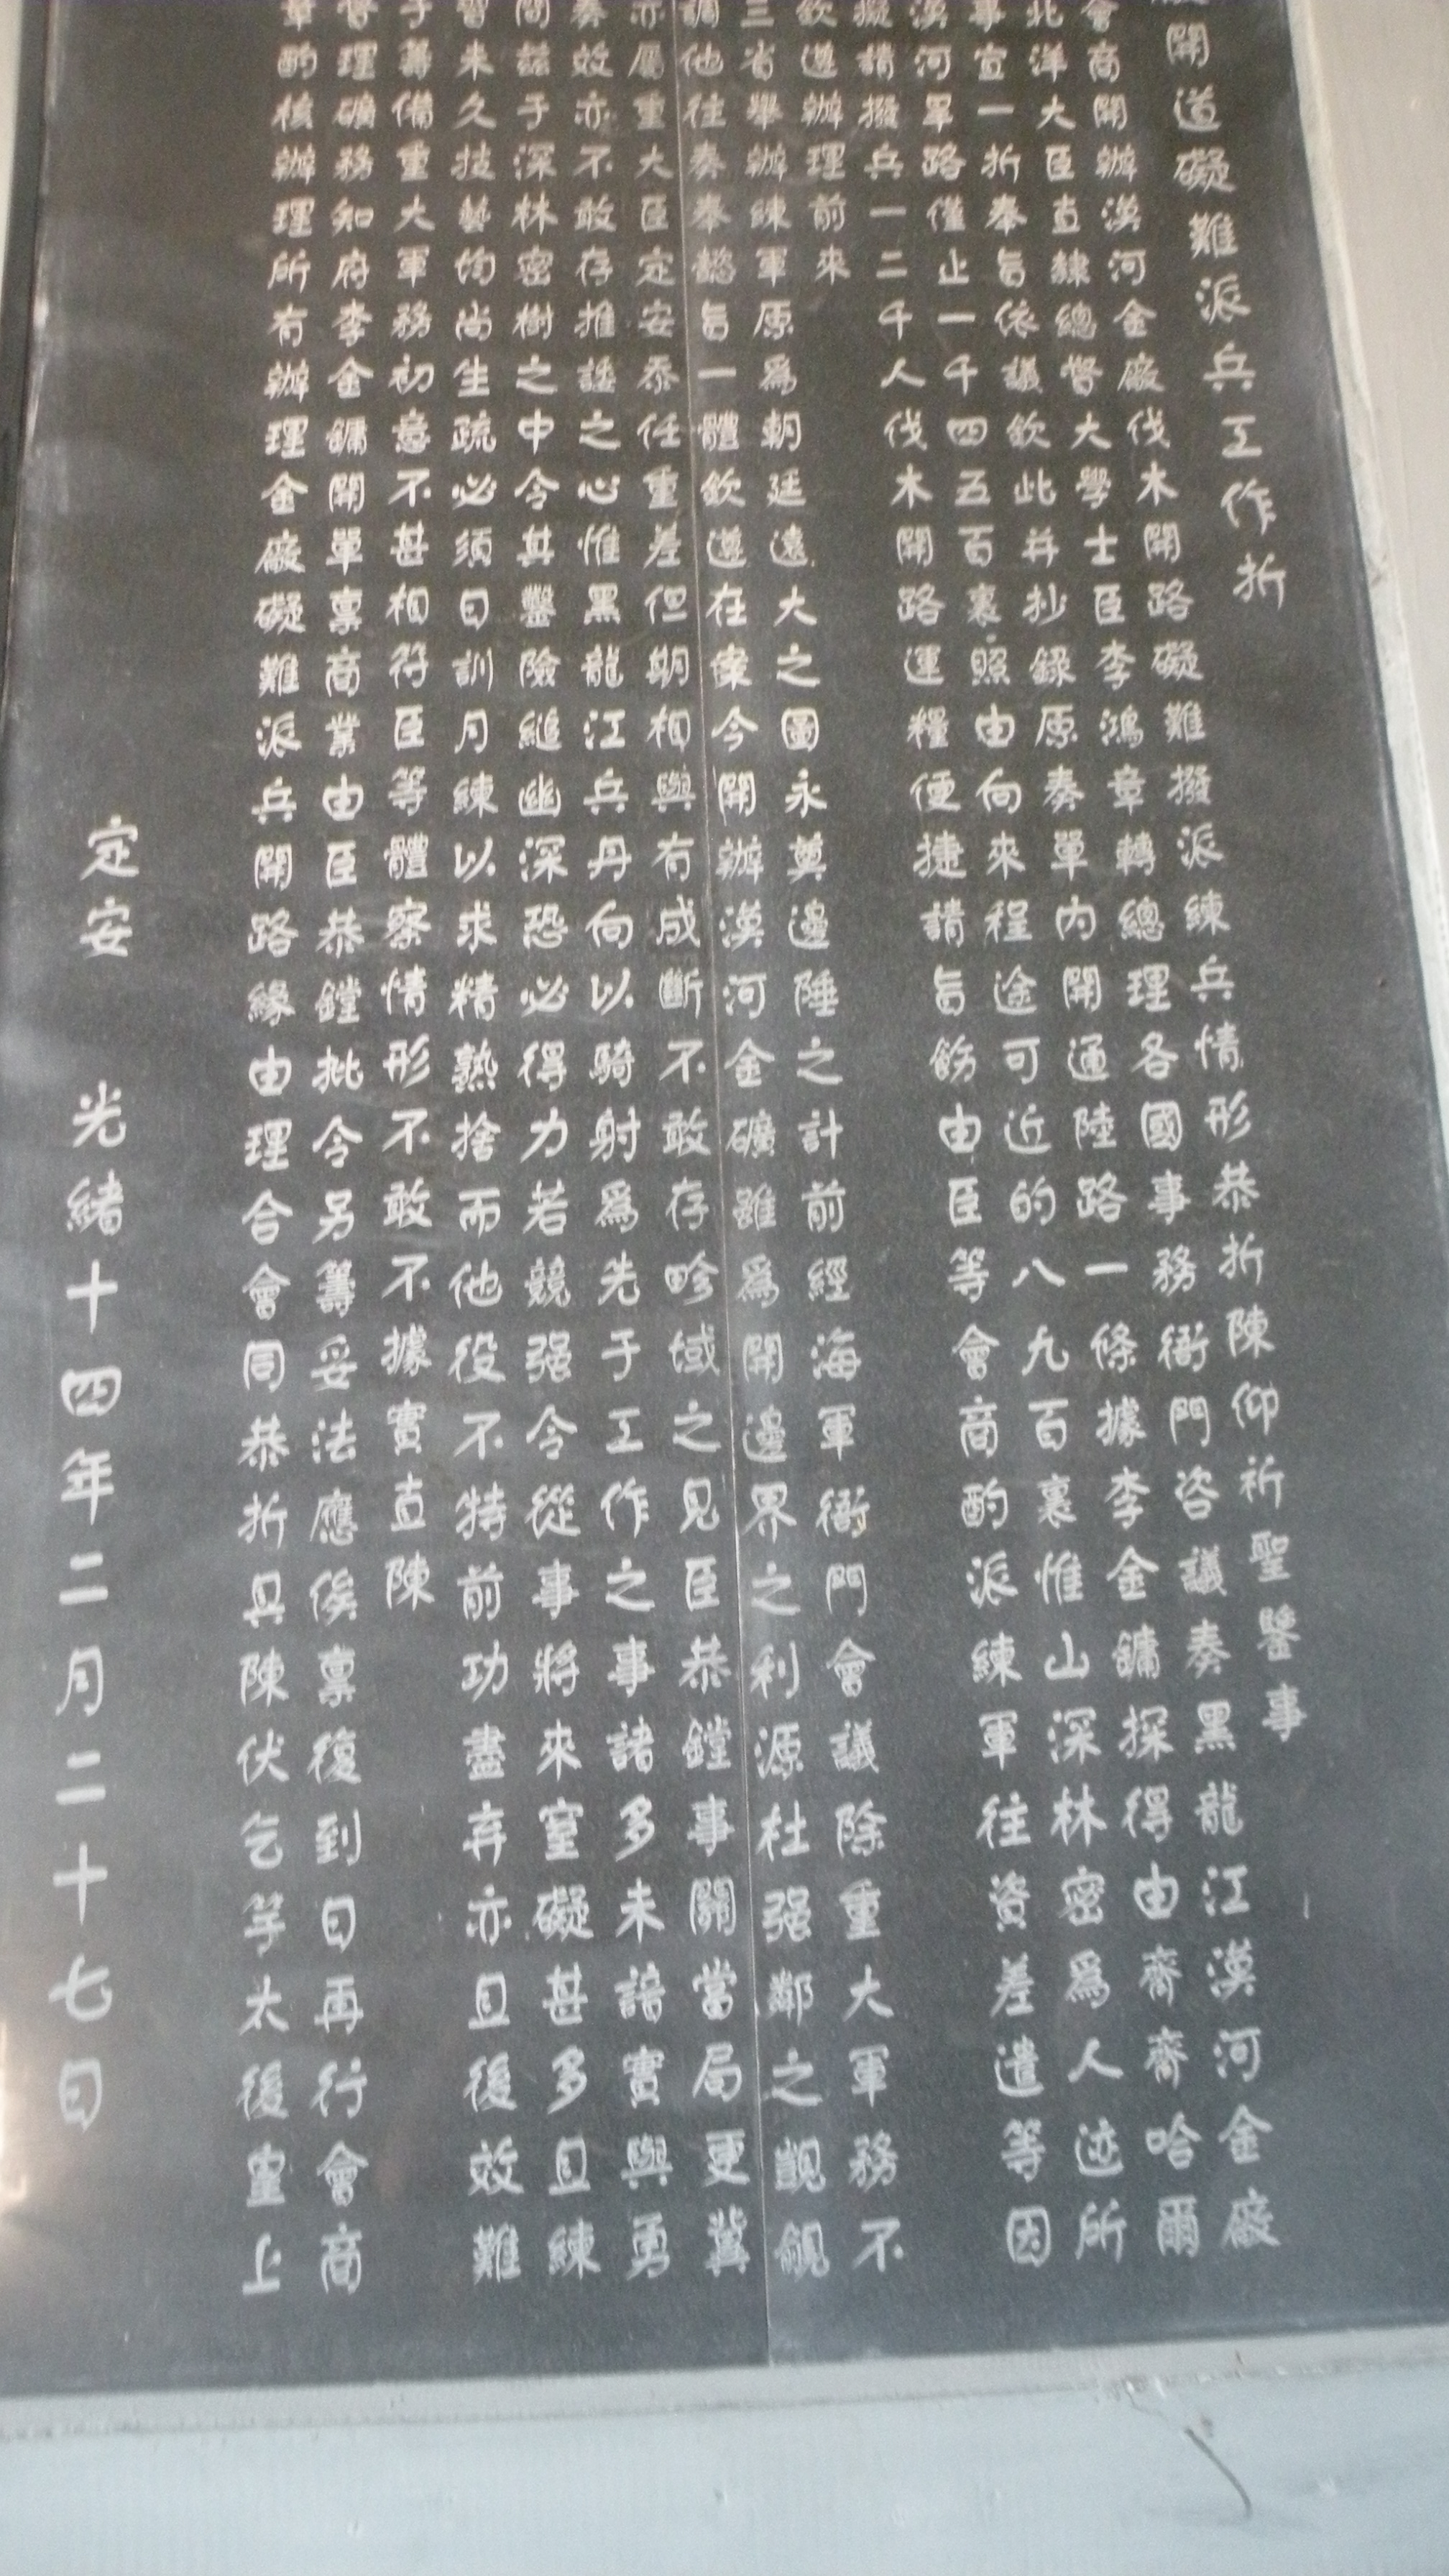 開道礙難派兵工作折
會商開辦漠河金廠伐木開路礙難撥派練兵情形恭折陳仰祈聖鑒事
北洋大臣直隸總督大學士臣李鴻章轉總理各國事務衙門咨議奏黑龍江漠河金廠
事宜一折奉旨依議欽此并抄錄原奏單內開通陸路一條據李金鏞探得由齊齊哈爾
漠河旱路僅止一千四五百裏照由向來程途可近的八九百裏惟山深林密爲人迹所
擬請撥兵一二千人伐木開路運糧便捷請旨飭由臣等會商酌派練軍往資差遣等因
欽遵辦理前來
三省舉辦練軍原爲朝廷遠大之圖永奠邊陲之計前經海軍衙門會議除重大軍務不
調他往奏奉懿旨一體欽遵在案今開辦漠河金礦雖爲開邊界之利源杜强鄰之覬覦
亦屬重大臣定安忝任重差但期相與有成斷不敢存畛域之見臣恭鏜事關當局更冀
奏效亦不敢存推諉之心惟黑龍江兵丹向以騎射爲先于工作之事諸多未諳實與勇
間茲于深林密樹之中令其鑿險縋幽深恐必得力若競强令從事將來窒礙甚多且練
習未久技藝均尚生疏必須日訓月練以求精熟捨而他役不特前功盡弃亦且後效難
于籌備重大軍務初意不甚相符臣等體察情形不敢不據實直陳
督理礦務知府李金鏞開單禀商業由臣恭鏜批令另籌妥法應俟禀復到日再行會商
章酌核辦理所有辦理金廠礙難派兵開路緣由理合會同恭折具陳伏乞等太後皇上
定安 光緒十四年二月二十七日